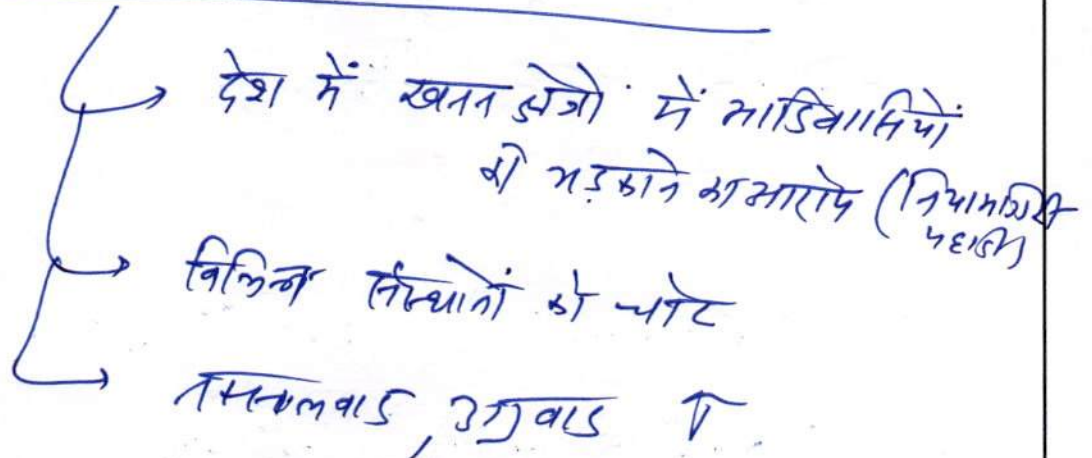 → देश में खनन क्षेत्रो में आदिवासियों
को भड़काने का आरोप (नियामगिरी
पहाडी)
→ विभिन्न संस्थानों को चोट
→ नक्सलवाद, उग्रवाद ↑